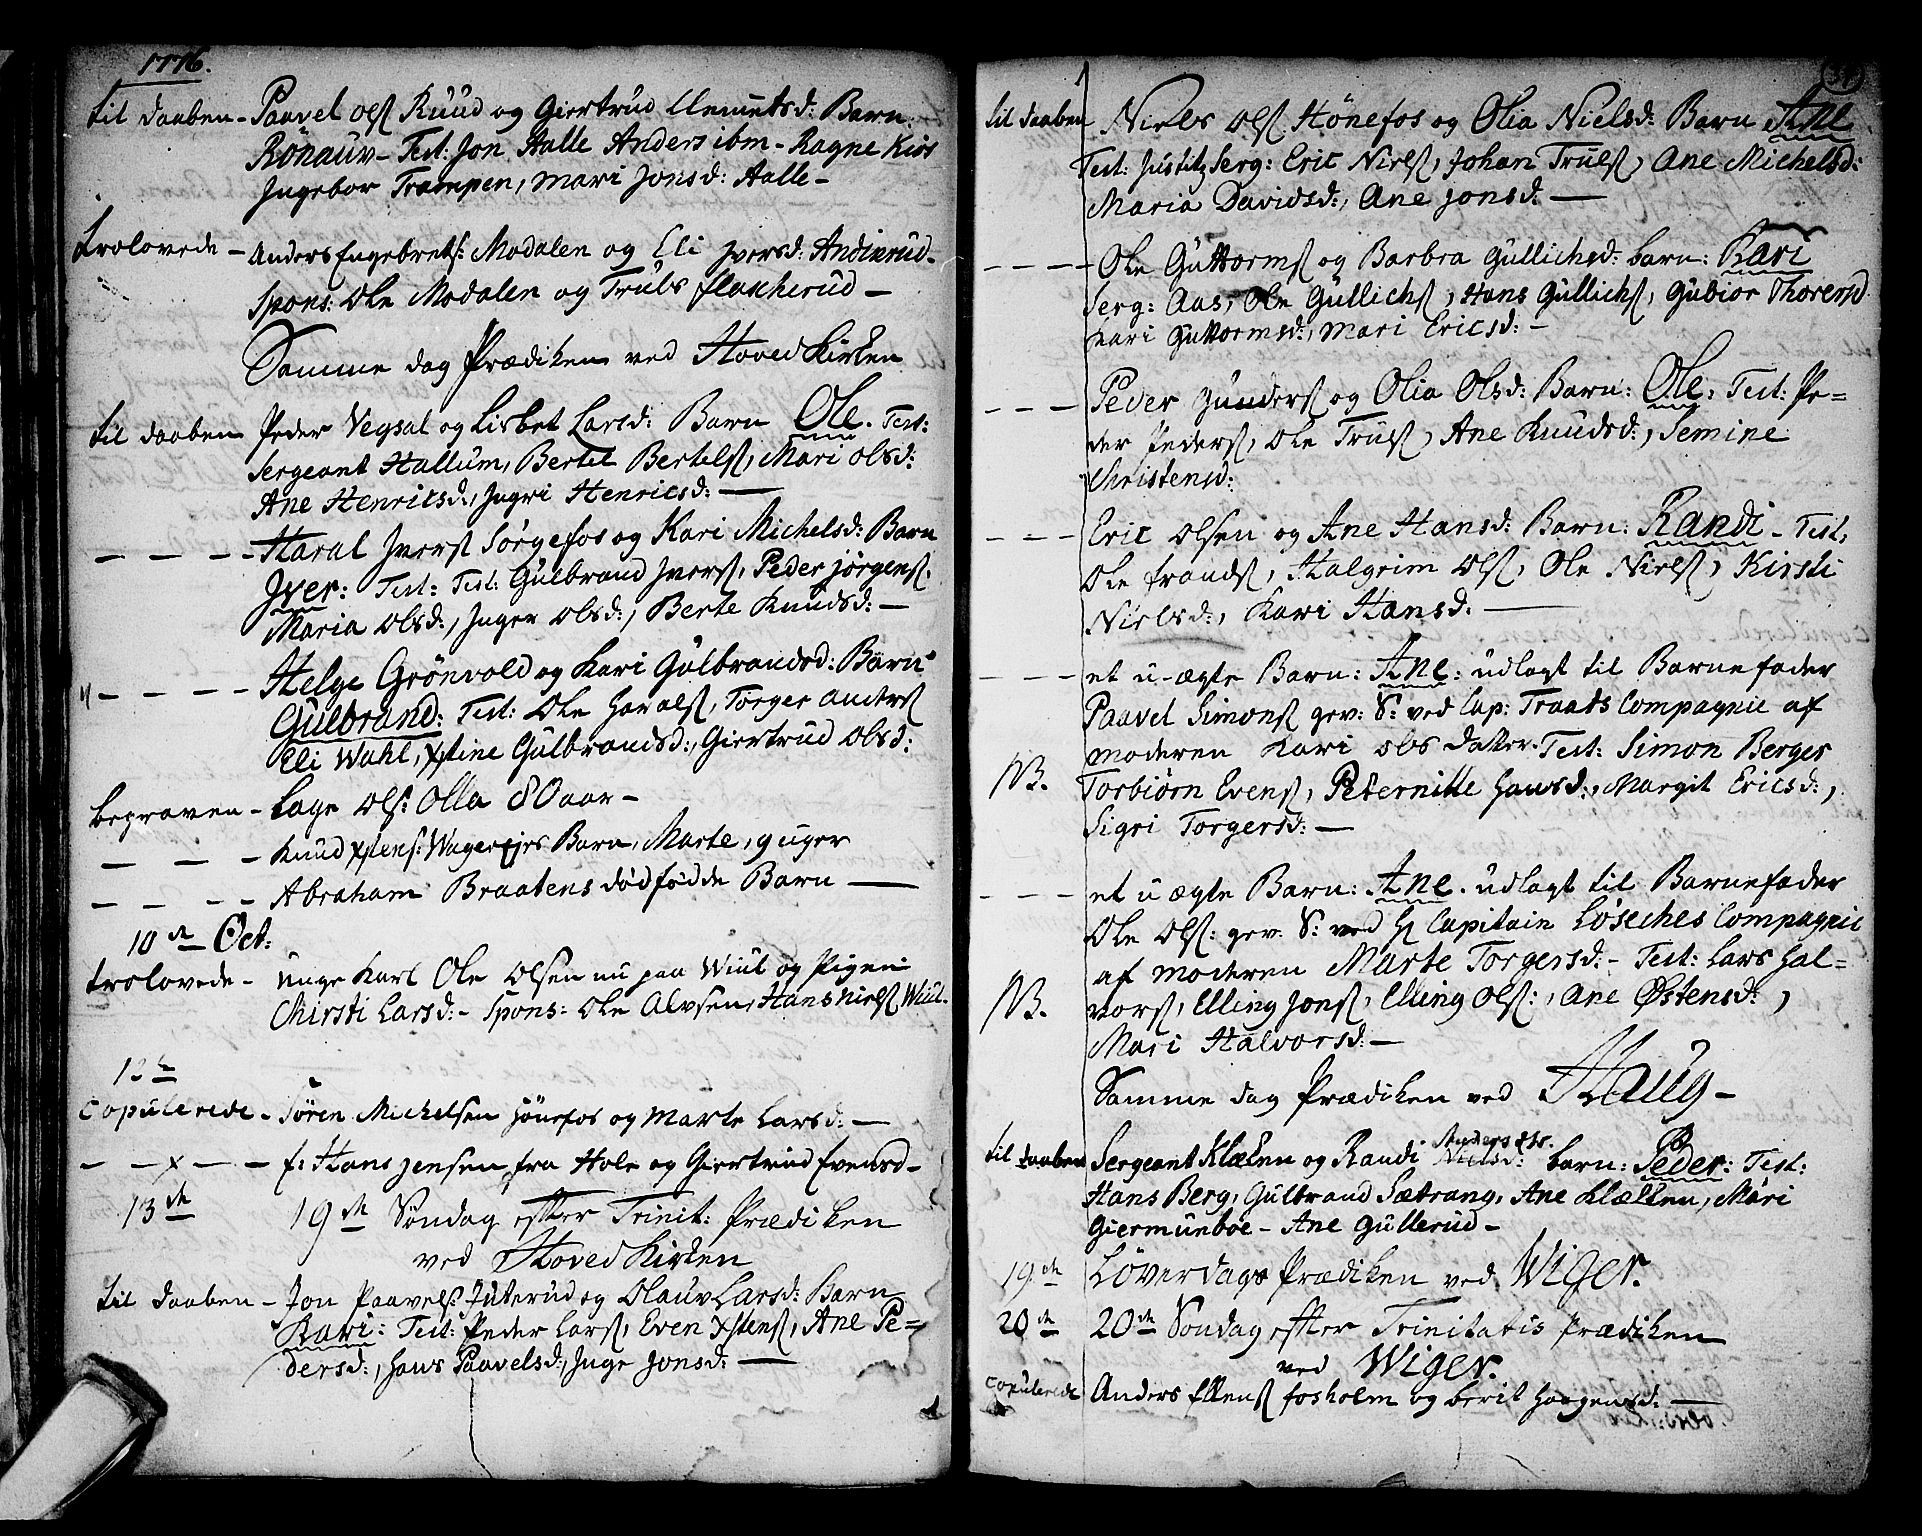 1776.
til daaben - Paavel Olsſ Ruud og Giertrud Clemetsd: Barn
Rönauv - Test: Jon Halle Anders ibm - Ragne Kiös
Jngebor Trampen, Mari Jonsd: Halle -
trolovede - Anders Engebretſ: Modalen og Eli Jversd: Andinrud -
Spons: Ole Modalen og Truls flaskerud -
Samme dag Prædiken ved Hoved Kirken
til daaben Peder Vegsal og Lisbet Larsd: Barn Ole. Test:
Sergeant Hallum, Bertel Bertelsſ, Mari Olsd:
Ane Henricsd:, Jngri Henricsd: —
— — — - Haral Jversſ Sørgefos og Kari Michelsd: Barn
Jver: Test: Test: Gulbrand Jversſ, Peder Jørgensſ,
Maria Olsd:, Jnger Olsd:, Berte Knudsd: —
— — — — Helge Grönvold og Kari Gulbrandsd: Barn
Gulbrand: Test: Ole Haralsſ, Torger Andersſ
Eli Wahl, Xstine Gulbrandsd:, Giertrud Olsd:
begraven - Lage Olsſ: Olla 80 aar -
— — — - Knud Xstensſ: Barn, Marte, 9 uger
— — — - Abraham Braatens dødfødde Barn —
10de Oct:
trolovede - unge Karl Ole Olsen nu paa Wiul og Pigen
Chirsti Larsd: - Spons: Ole Alvsen, Hans Nielsſ Wiul.
12te
Copulerede - Sören Michelsen Hönefos og Marte Larsd: —
— — x — — f: Hans Jensen fra Hole og Giertrud Evensd -
13de 19de Søndag efter Trinit: Prædiken
ved Hoved Kirken
til daaben - Jon Paavelsſ: Juterud og Olauv Larsd: Barn
Kari: Test: Peder Larsſ, Even Xstensſ, Ane Pe=
dersd:, Hans Paavelsd:, Jnge Jonsd: —
til daaben Niels Olsſ. Hönefos og Olia Nielsd: Barn Ane
Test: Justitz Serg: Eric Nielsſ, Johan Trulsſ, Ane Michelsd:
Maria Davidsd:, Ane Jonsd: —
— — — - Ole Guttormsſ og Barbra Gullichsd: barn: Kari
Serg: Aas, Ole Gullichsſ, Hans Gullichsſ, Gubiör Thoresd
Kari Guttormsd:, Mari Ericsd: -
— — — Peder Gundersſ og Olia Olsd: Barn: Ole, Test: Pe=
der Pedersſ, Ole Trulsſ, Ane Knudsd:, Semine
Christensd:
— — — Eric Olsen og Ane Hansd: Barn: Randi - Test:
Ole frandsſ, Halgrim Olsſ, Ole Nielsſ, Kirsti
Nielsd:, Kari Hansd: —
— — — et u-ægte Barn: Ane: udlagt til Barnefader
Paavel Simonsſ gev: S: ved Cap: Traats Compagnie af
moderen Kari Ols datter. Test: Simon Berger
NB. Torbiörn Evensſ, Peternille Hansd:, Margit Ericsd:,
Sigri Torgersd: —
— — — et u ægte Barn: Ane. udlagt til Barnefader
Ole Olsſ: gev: S: ved Hr Capitain Löseches Compagnie
af moderen Marte Torgersd: - Test: Lars Hal=
NB. vorsſ, Elling Jonsſ, Elling Olsſ:, Ane Østensd:,
Mari Halvorsd: —
Samme dag Prædiken ved Haug -
til daaben Sergeant Klækken og Randi Nielsd: Anders dtr. barn: Peder: Test:
Hans Berg, Gulbrand Sætrang, Ane Klækken, Mari
Giermunboe - Ane Gullerud -
19de Löverdags Prædiken ved Wiger.
20de 20de Söndag efter Trinitatis Prædiken
ved Wiger.
Copulerede Anders Ellensſ fosholm og berit Haagensd: —